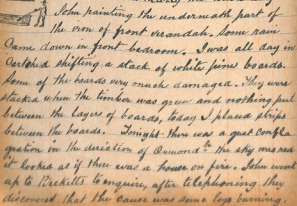 John painting the underneath part of
the iron of front verandah. Some rain
came down in front bedroom. I was all day in
Cartshed shifting a stack of white pine boards.
Some of the boards very much damaged. They were
stacked when the timber was green and nothing put
between the layers of boards, today I placed strips
between the boards. Tonight there was a great confla
gration in the direction of Ormond the sky was red
it looked as if there was a house on fire. John went
up to Ricketts to enquire, after telephoning they
discovered that the cause was some logs burning.